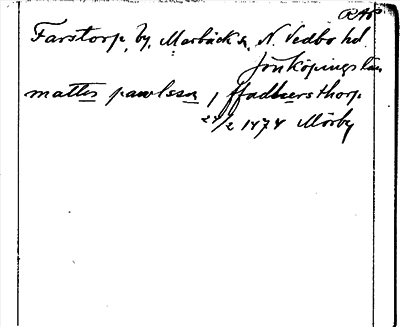 RAP
Farstorp, by, Marbäck s, N. Vedbo hd.
Jönköpings län
mattes pawlssa i ffadhersthorp
24/2 1474 Mörby